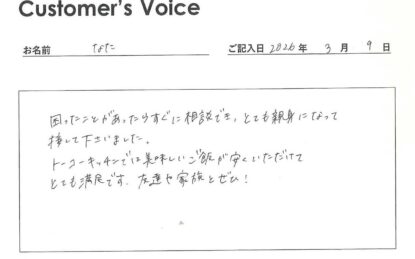 Customer's Voice
お名前 なた ご記入日 2026年 3月 9日
困ったことがあったらすぐに相談でき、とても親身になって
接して下さいました。
トーコーキッチンでは美味しいご飯が安くいただけて
とても満足です。友達や家族とぜひ!